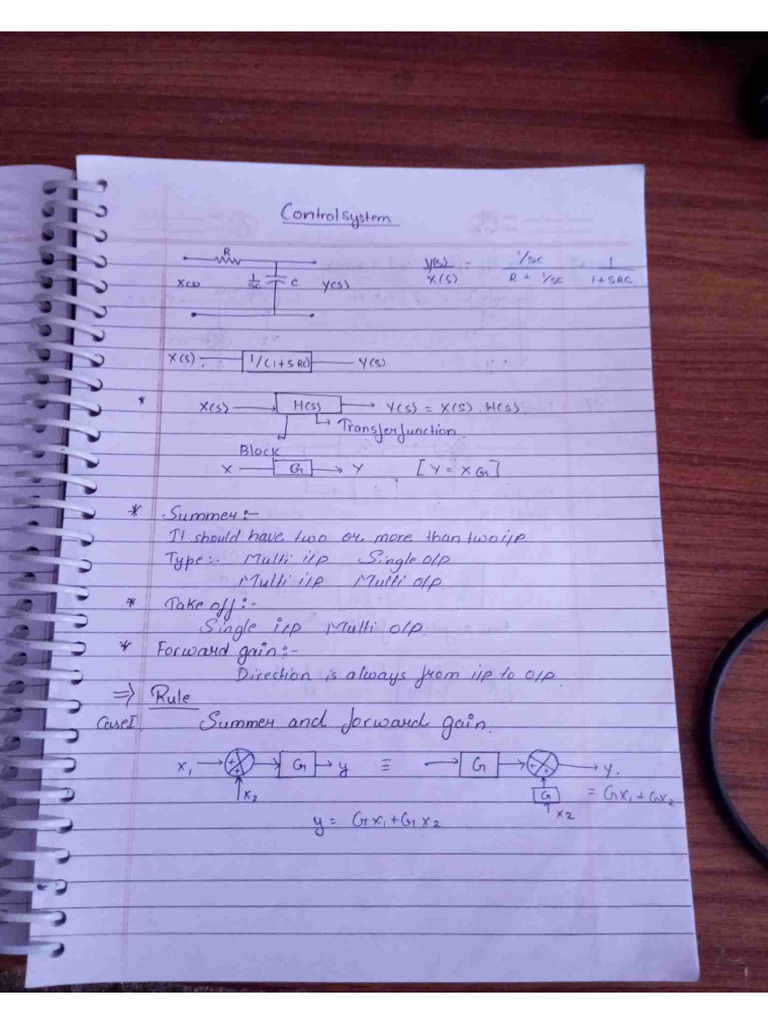 Control system
R
X(s) 1/SC C Y(s)
Y(s)/X(S) = 1/SC / R + 1/SC 1/1+SRC
X(S) 1/(1+S RC) Y(S)
* X(S) H(S) Y(S) = X(S) . H(S).
Transfer function
Block
X G Y [Y = X G]
* Summer:-
It should have two or more than two i/p
Type:- Multi i/p Single o/p
Multi i/p Multi o/p.
* Take off:-
Single i/p Multi o/p.
* Forward gain:-
Direction is always from i/p to o/p.
⇒ Rule
Case I Summer and forward gain.
x1 + + G y ≡ G + + y.
x2 G = Gx1 + Gx2
x2
y = Gx1 + Gx2